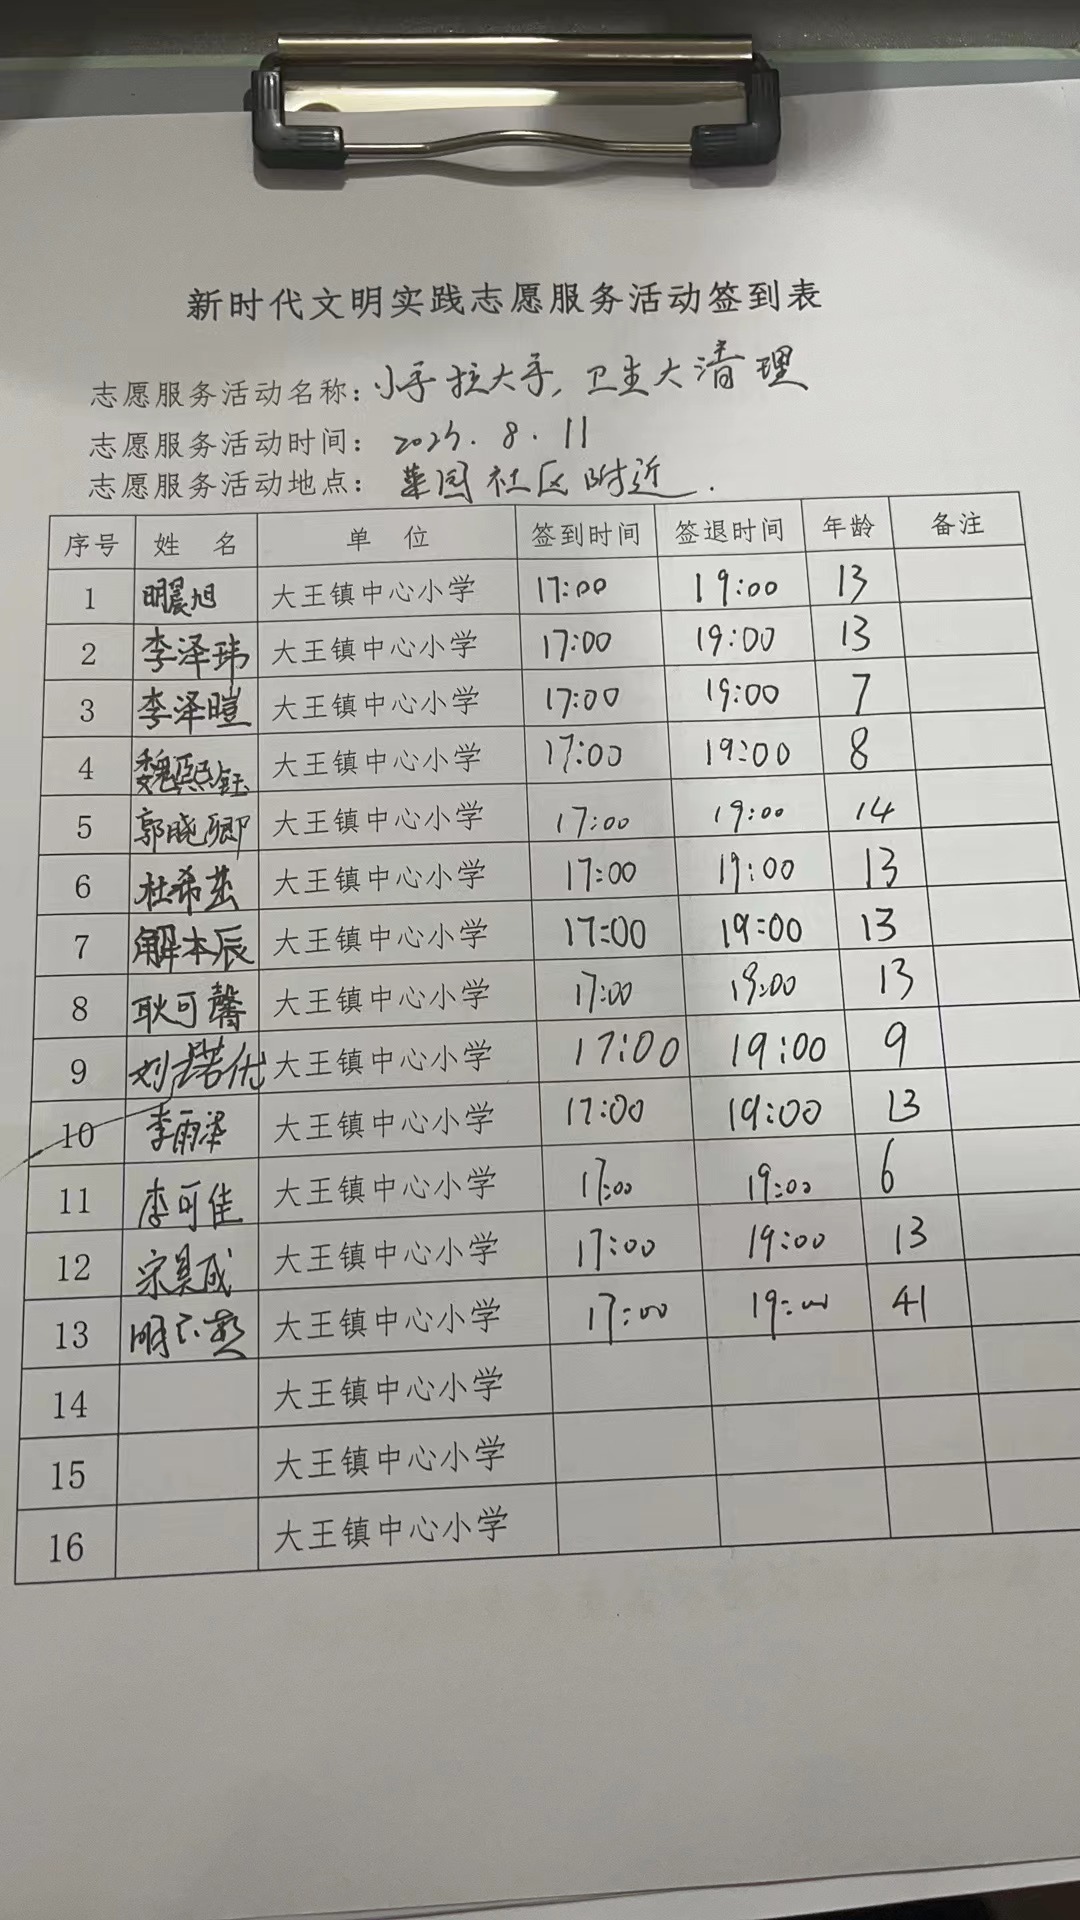 新时代文明实践志愿服务活动签到表
志愿服务活动名称：小手拉大手，卫生大清理
志愿服务活动时间： 2025.8.11
志愿服务活动地点： 菜园社区附近.
序号 姓 名 单 位 签到时间 签退时间 年龄 备注
1 明晨旭 大王镇中心小学 17:00 19:00 13
2 李泽玮 大王镇中心小学 17:00 19:00 13
3 李泽暟 大王镇中心小学 17:00 19:00 7
4 魏熙钰 大王镇中心小学 17:00 19:00 8
5 郭晓卿 大王镇中心小学 17:00 19:00 14
6 杜希 大王镇中心小学 17:00 19:00 13
7 解本辰 大王镇中心小学 17:00 19:00 13
8 耿可馨 大王镇中心小学 17:00 19:00 13
9 刘诺优 大王镇中心小学 17:00 19:00 9
10 李雨 大王镇中心小学 17:00 19:00 13
11 李可佳 大王镇中心小学 17:00 19:00 6
12 宋昊成 大王镇中心小学 17:00 19:00 13
13 明 大王镇中心小学 17:00 19:00 41
14 大王镇中心小学
15 大王镇中心小学
16 大王镇中心小学